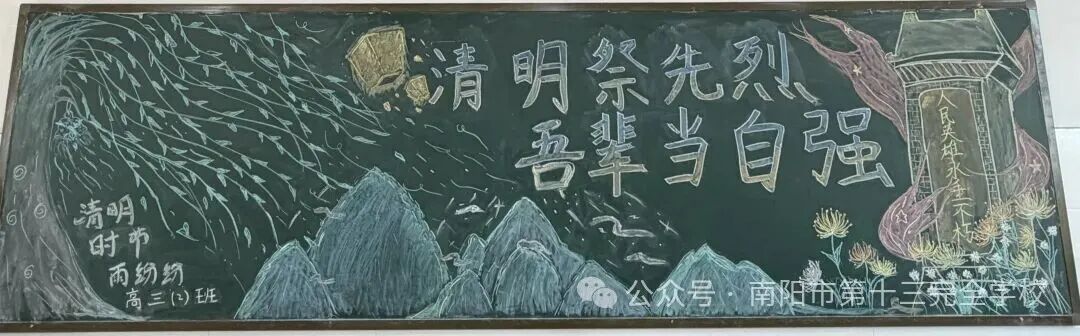 清明祭先烈
吾辈当自强
人民英雄永垂不朽
清明
时节
雨纷纷
高三(2)班
公众号·南阳市第十三完全学校